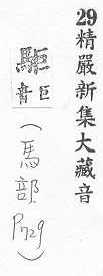 29精嚴新集大藏音
駏
巨音
(馬部
P729)